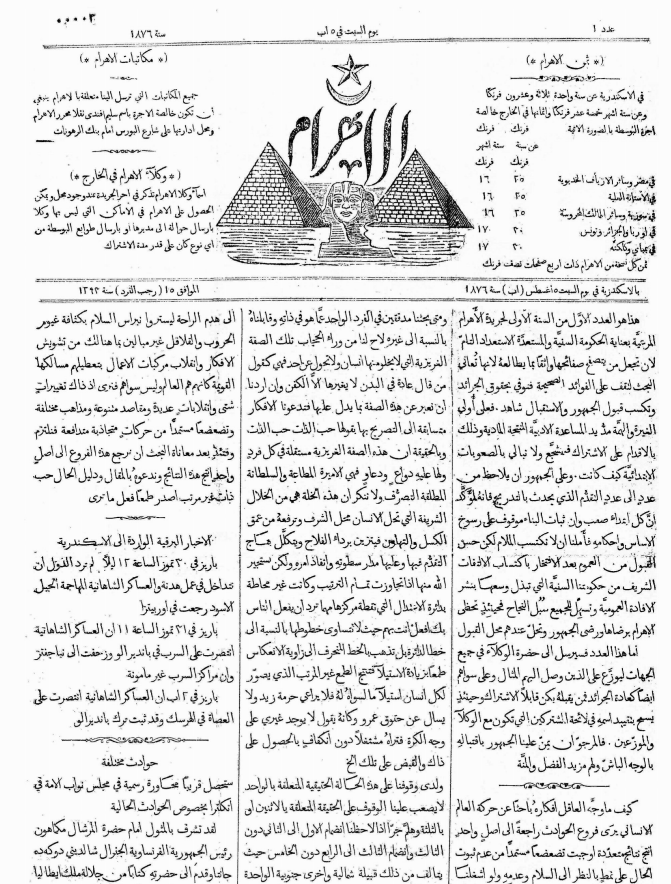 عدد ١
يوم السبت في ٥ اب
سنة ١٨٧٦
٠٠٠٠٣
(* ثمن الاهرام *)
في الاسكندرية عن سنة واحدة ثلاثة وعشرون فرنكا
وعن ستة اشهر خمسة عشر فرنكا واثمانها في الخارج خالصة
اجرة البوسطة بالصورة الاتية فرنك فرنك
عن سنة ستة اشهر
فرنك فرنك
في مصر وسائر الارياف الخديوية ٢٥ ١٦
في الاستانة العلية ٢٥ ١٦
في سورية وسائر الممالك المحروسة ٢٥ ١٦
في اوربا والجزائر وتونس ٣٠ ١٧
في بمباي وكلكته ٣٠ ١٧
ثمن كل نسخة من الاهرام ذات اربع صفحات نصف فرنك
الاهرام
(* مكاتبات الاهرام *)
جميع المكاتبات التي ترسل الينا متعلقة بالاهرام ينبغي
ان تكون خالصة الاجرة باسم سليم افندي تقلا محرر الاهرام
ومحل ادارتها على شارع البورس امام بنك الرهونات
(* وكلاء الاهرام في الخارج *)
اسماء وكلا الاهرام تذكر في اخر الجريدة عند وجود محل ويمكن
الحصول على الاهرام في الاماكن التي ليس بها وكلا
بارسال حوالة الى مديرها او بارسال طوابع البوسطة من
اي نوع كان على قدر مدة الاشتراك
بالاسكندرية في يوم السبت ٥ اغسطس (اب) سنة ١٨٧٦
الموافق ١٥ (رجب الفرد) سنة ١٢٩٣
هذا هو العدد الاول من السنة الاولى لجريدة الاهرام
المرتبة بعناية الحكومة السنية والمستعدة الاستعداد التام
لان تجعل من يتصفح صفائحها واثقا بما يطالعه لانها تعاني
البحث لتقف على الفوائد الصحيحة فتوفي بحقوق الجرائد
وتكسب قبول الجمهور والاستقبال شاهد . فعلى أولي
الغيرة والهمة مديد المساعدة الادبية المنتجة المادية وذلك
بالاقدام على الاشتراك فتنجح ولا نبالي بالصعوبات
الابتدائية كيف كانت . وعلى الجمهور ان يلاحظ من
عدد الى عدد التقدم الذي يحدث بالتدريج فانه لمؤكد
ان كل ابتداء صعب وإن ثبات البناء موقوف على رسوخ
الاساس واحكامه فأملنا ان لا نكتسب الملام لكن حسن
القبول من العموم بعد الافتخار باكتساب الالتفات
الشريف من حكومتنا السنية التي تبذل وسعها بنشر
الافادة العمومية وتسهل للجميع سبل النجاح فحينئذ تحظى
الاهرام برضاها ورضى الجمهور وتحل عندهم محل القبول
اما هذا العدد فسيرسل الى حضرة الوكلاء في جميع
الجهات ليوزع على الذين وصل اليهم المثال وعلى سواهم
ايضا كعادة الجرائد فمن يقبله يكن قابلا الاشتراك وحينئذ
يسمح بتقييد اسمه في لائحة المشتركين التي تكون مع الوكلاء
والموزعين . فالمرجو ان يمن علينا الجمهور باقتباله
بالوجه الباش ولهم مزيد الفضل والمنة
كيف ما وجه العاقل افكاره باحثا عن حركة العالم
الانساني يرى فروع الحوادث راجعة الى اصل واحد
انتج نتائج متعددة اوجبت تضعضعا مستمدا من عدم ثبوت
الحال على نمط بالنظر الى السلام وعدمه ولو اشغلنا
ومتى بحثنا مدققين في الفرد الواحد عما هو في ذاته وقابلناه
بالنسبة الى غيره لاح لنا من وراء الحجاب تلك الصفة
الغريزية التي لا يخلو منها انسان ولا تحول عن احد فهي كقول
من قال عادة في البدن لا يغيرها الا الكفن وإن اردنا
ان نعبر عن هذه الصفة بما يدل عليها فتدعونا الافكار
متسابقة الى التصريح بها بقولها حب الذات حب الذات
وبالحقيقة ان هذه الصفة الغريزية مستقلة في كل فرد
ولها عليه دواع ودعاو فهي الاميرة المطاعة والسلطانة
المطلقة التصرف ولا ننكر ان هذه الخلة هي من الخلال
الشريفة التي تحل الانسان محل الشرف وترفعه من عمق
الكسل والتهاون فيتزين برداء الفلاح ويتكلل بتاج
التقدم فيها وعليها مدار سطوته وانفاذ امره ولكن نستجير
الله منها اذا تجاوزت تمام الترتيب وكانت غير محاطة
بدائرة الامتثال التي نقطة مركزها ما تريد ان يفعل الناس
بك افعل انت بهم حيث لا تتساوى خطوطها بالنسبة الى
خط الدائرة بل تذهب بالخط المنحرف الى زاوية الانعكاس
طمعا بزيادة الاستيلاء فتنتج الطمع غير المرتب الذي يصور
لكل انسان استيلاء ما لسواه له فلا يراعي حرمة زيد ولا
يسال عن حقوق عمرو وكأنه يقول لا يوجد غيري على
وجه الكرة فتراه مشتغلا دون انكفاف بالحصول على
ذاك والقبض على تلك الخ
ولدى وقوفنا على هذه الحالة الحقيقية المتعلقة بالواحد
لا يصعب علينا الوقوف على الحقيقة المتعلقة بالاثنين او
بالثلثة وهلم جرا اذا لاحظنا انضمام الاول الى الثاني دون
الثالث وانضمام الثالث الى الرابع دون الخامس حيث
يتالف من ذلك قبيلة شمالية واخرى جنوبية الواحدة
الى هدم الراحة ليستروا نبراس السلام بكثافة غيوم
الحروب والقلاقل غير مبالين بما هنالك من تشويش
الافكار وانقلاب مركبات الاعمال بتعطيلهم مسالكها
القوية كانهم هم العالم وليس سواهم فنرى اذ ذاك تغييرات
شتى وانقلابات عديدة ومقاصد متنوعة ومذاهب مختلفة
وتضعضعا مستمدا من حركات متجاذبة متدافعة فنلتزم
وقتئذ بعد معاناة البحث ان نرجع هذه الفروع الى اصل
واحد انتج هذه النتائج وندعوه بالمقال ودليل الحال حب
ذات غير مرتب اصدر طمعا فعل ما نرى
الاخبار البرقية الواردة الى الاسكندرية
باريز في ٣٠ تموز الساعة ١٢ ليلا لم ترد الدول ان
تتداخل في عمل هدنة والعساكر الشاهانية المهاجمة الجبل
الاسود رجعت في اوربيتزا
باريز في ٣١ تموز الساعة ١١ ان العساكر الشاهانية
انتصرت على السرب في بانديرالو وزحفت الى نياجفتز
وإن مراكز السرب غير مامونة
باريز في ٢ اب ان العساكر الشاهانية انتصرت على
العصاة في الهرسك وقد ثبت ترك بانديرالو
حوادث مختلفة
ستحصل قريبا محاورة رسمية في مجلس نواب الامة في
انكلترا بخصوص الحوادث الحالية
لقد تشرف بالمثول امام حضرة المرشال مكماهون
رئيس الجمهورية الفرنساوية الجنرال شالديني دوكه ده
جائتا وقدم الى حضرته كتابا من جلالة ملك ايطاليا